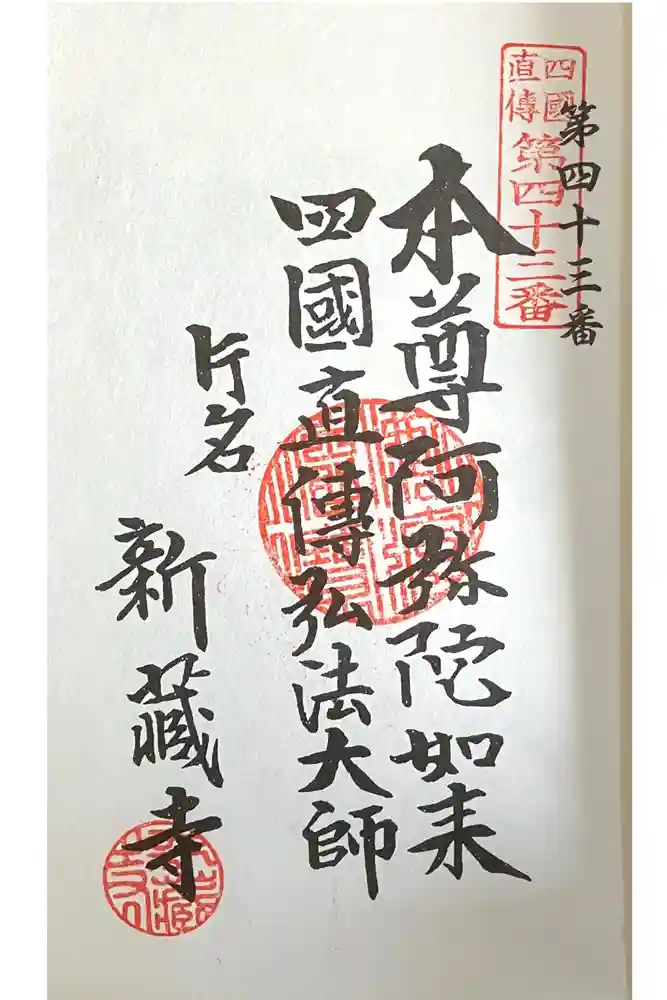 第四十三番
四國
直傳
第四十三番
本尊阿弥陀如来
四國直傳弘法大師
片名
新蔵寺